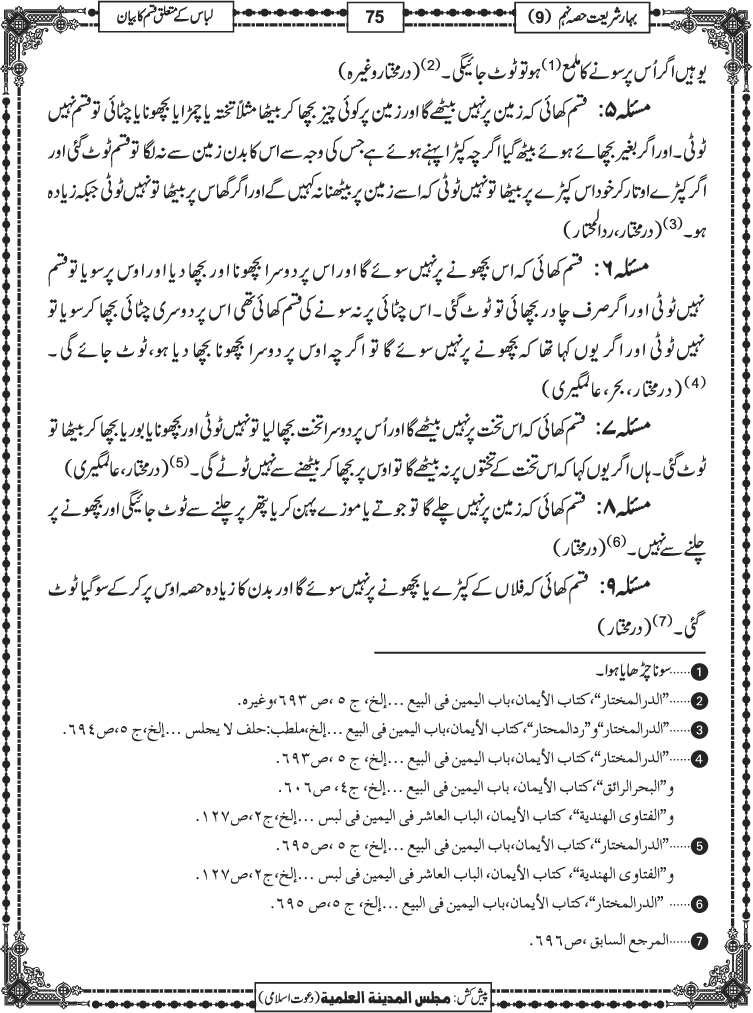 بہار شریعت حصہ نہم (9)
75
لباس کے متعلق قسم کا بیان
یوہیں اگر اُس پر سونے کا ملمع(1) ہو تو ٹوٹ جائیگی۔(2) (درمختار وغیرہ)
مسئلہ ۵: قسم کھائی کہ زمین پر نہیں بیٹھے گا اور زمین پر کوئی چیز بچھا کر بیٹھا مثلاً تختہ یا چمڑا یا بچھونا یا چٹائی تو قسم نہیں
ٹوٹی۔ اور اگر بغیر بچھائے ہوئے بیٹھ گیا اگرچہ کپڑا پہنے ہوئے ہے جس کی وجہ سے اس کا بدن زمین سے نہ لگا تو قسم ٹوٹ گئی اور
اگر کپڑے اوتار کر خود اس کپڑے پر بیٹھا تو نہیں ٹوٹی کہ اسے زمین پر بیٹھنا نہ کہیں گے اور اگر گھاس پر بیٹھا تو نہیں ٹوٹی جبکہ زیادہ
ہو۔(3) (درمختار، ردالمحتار)
مسئلہ ۶: قسم کھائی کہ اس بچھونے پر نہیں سوئے گا اور اس پر دوسرا بچھونا اور بچھا دیا اور اوس پر سویا تو قسم
نہیں ٹوٹی اور اگر صرف چادر بچھائی تو ٹوٹ گئی۔ اس چٹائی پر نہ سونے کی قسم کھائی تھی اس پر دوسری چٹائی بچھا کر سویا تو
نہیں ٹوٹی اور اگر یوں کہا تھا کہ بچھونے پر نہیں سوئے گا تو اگرچہ اوس پر دوسرا بچھونا بچھا دیا ہو، ٹوٹ جائے گی۔
(4) (درمختار، بحر، عالمگیری)
مسئلہ ۷: قسم کھائی کہ اس تخت پر نہیں بیٹھے گا اور اُس پر دوسرا تخت بچھا لیا تو نہیں ٹوٹی اور بچھونا یا بوریا بچھا کر بیٹھا تو
ٹوٹ گئی۔ ہاں اگر یوں کہا کہ اس تخت کے تختوں پر نہ بیٹھے گا تو اوس پر بچھا کر بیٹھنے سے نہیں ٹوٹے گی۔(5) (درمختار، عالمگیری)
مسئلہ ۸: قسم کھائی کہ زمین پر نہیں چلے گا تو جوتے یا موزے پہن کر یا پتھر پر چلنے سے ٹوٹ جائیگی اور بچھونے پر
چلنے سے نہیں۔(6) (درمختار)
مسئلہ ۹: قسم کھائی کہ فلاں کے کپڑے یا بچھونے پر نہیں سوئے گا اور بدن کا زیادہ حصہ اوس پر کر کے سو گیا ٹوٹ
گئی۔(7) (درمختار)
1......سونا چڑھایا ہوا۔
2......”الدرالمختار“، کتاب الأیمان، باب الیمین فی البیع ...إلخ، ج ۵، ص ۶۹۳، وغیرہ.
3......”الدرالمختار“و”ردالمحتار“، کتاب الأیمان، باب الیمین فی البیع ...إلخ، مطلب: حلف لا یجلس ...إلخ، ج ۵، ص ۶۹۴.
4......”الدرالمختار“، کتاب الأیمان، باب الیمین فی البیع ...إلخ، ج ۵، ص ۶۹۳.
و”البحرالرائق“، کتاب الأیمان، باب الیمین فی البیع ...إلخ، ج ۴، ص ۶۰۶.
و”الفتاوی الھندیة“، کتاب الأیمان، الباب العاشر فی الیمین فی لبس ...إلخ، ج ۲، ص ۱۲۷.
5......”الدرالمختار“، کتاب الأیمان، باب الیمین فی البیع ...إلخ، ج ۵، ص ۶۹۵.
و”الفتاوی الھندیة“، کتاب الأیمان، الباب العاشر فی الیمین فی لبس ...إلخ، ج ۲، ص ۱۲۷.
6......”الدرالمختار“، کتاب الأیمان، باب الیمین فی البیع ...إلخ، ج ۵، ص ۶۹۵.
7......المرجع السابق، ص ۶۹۶.
پیش کش: مجلس المدینة العلمیة (دعوت اسلامی)